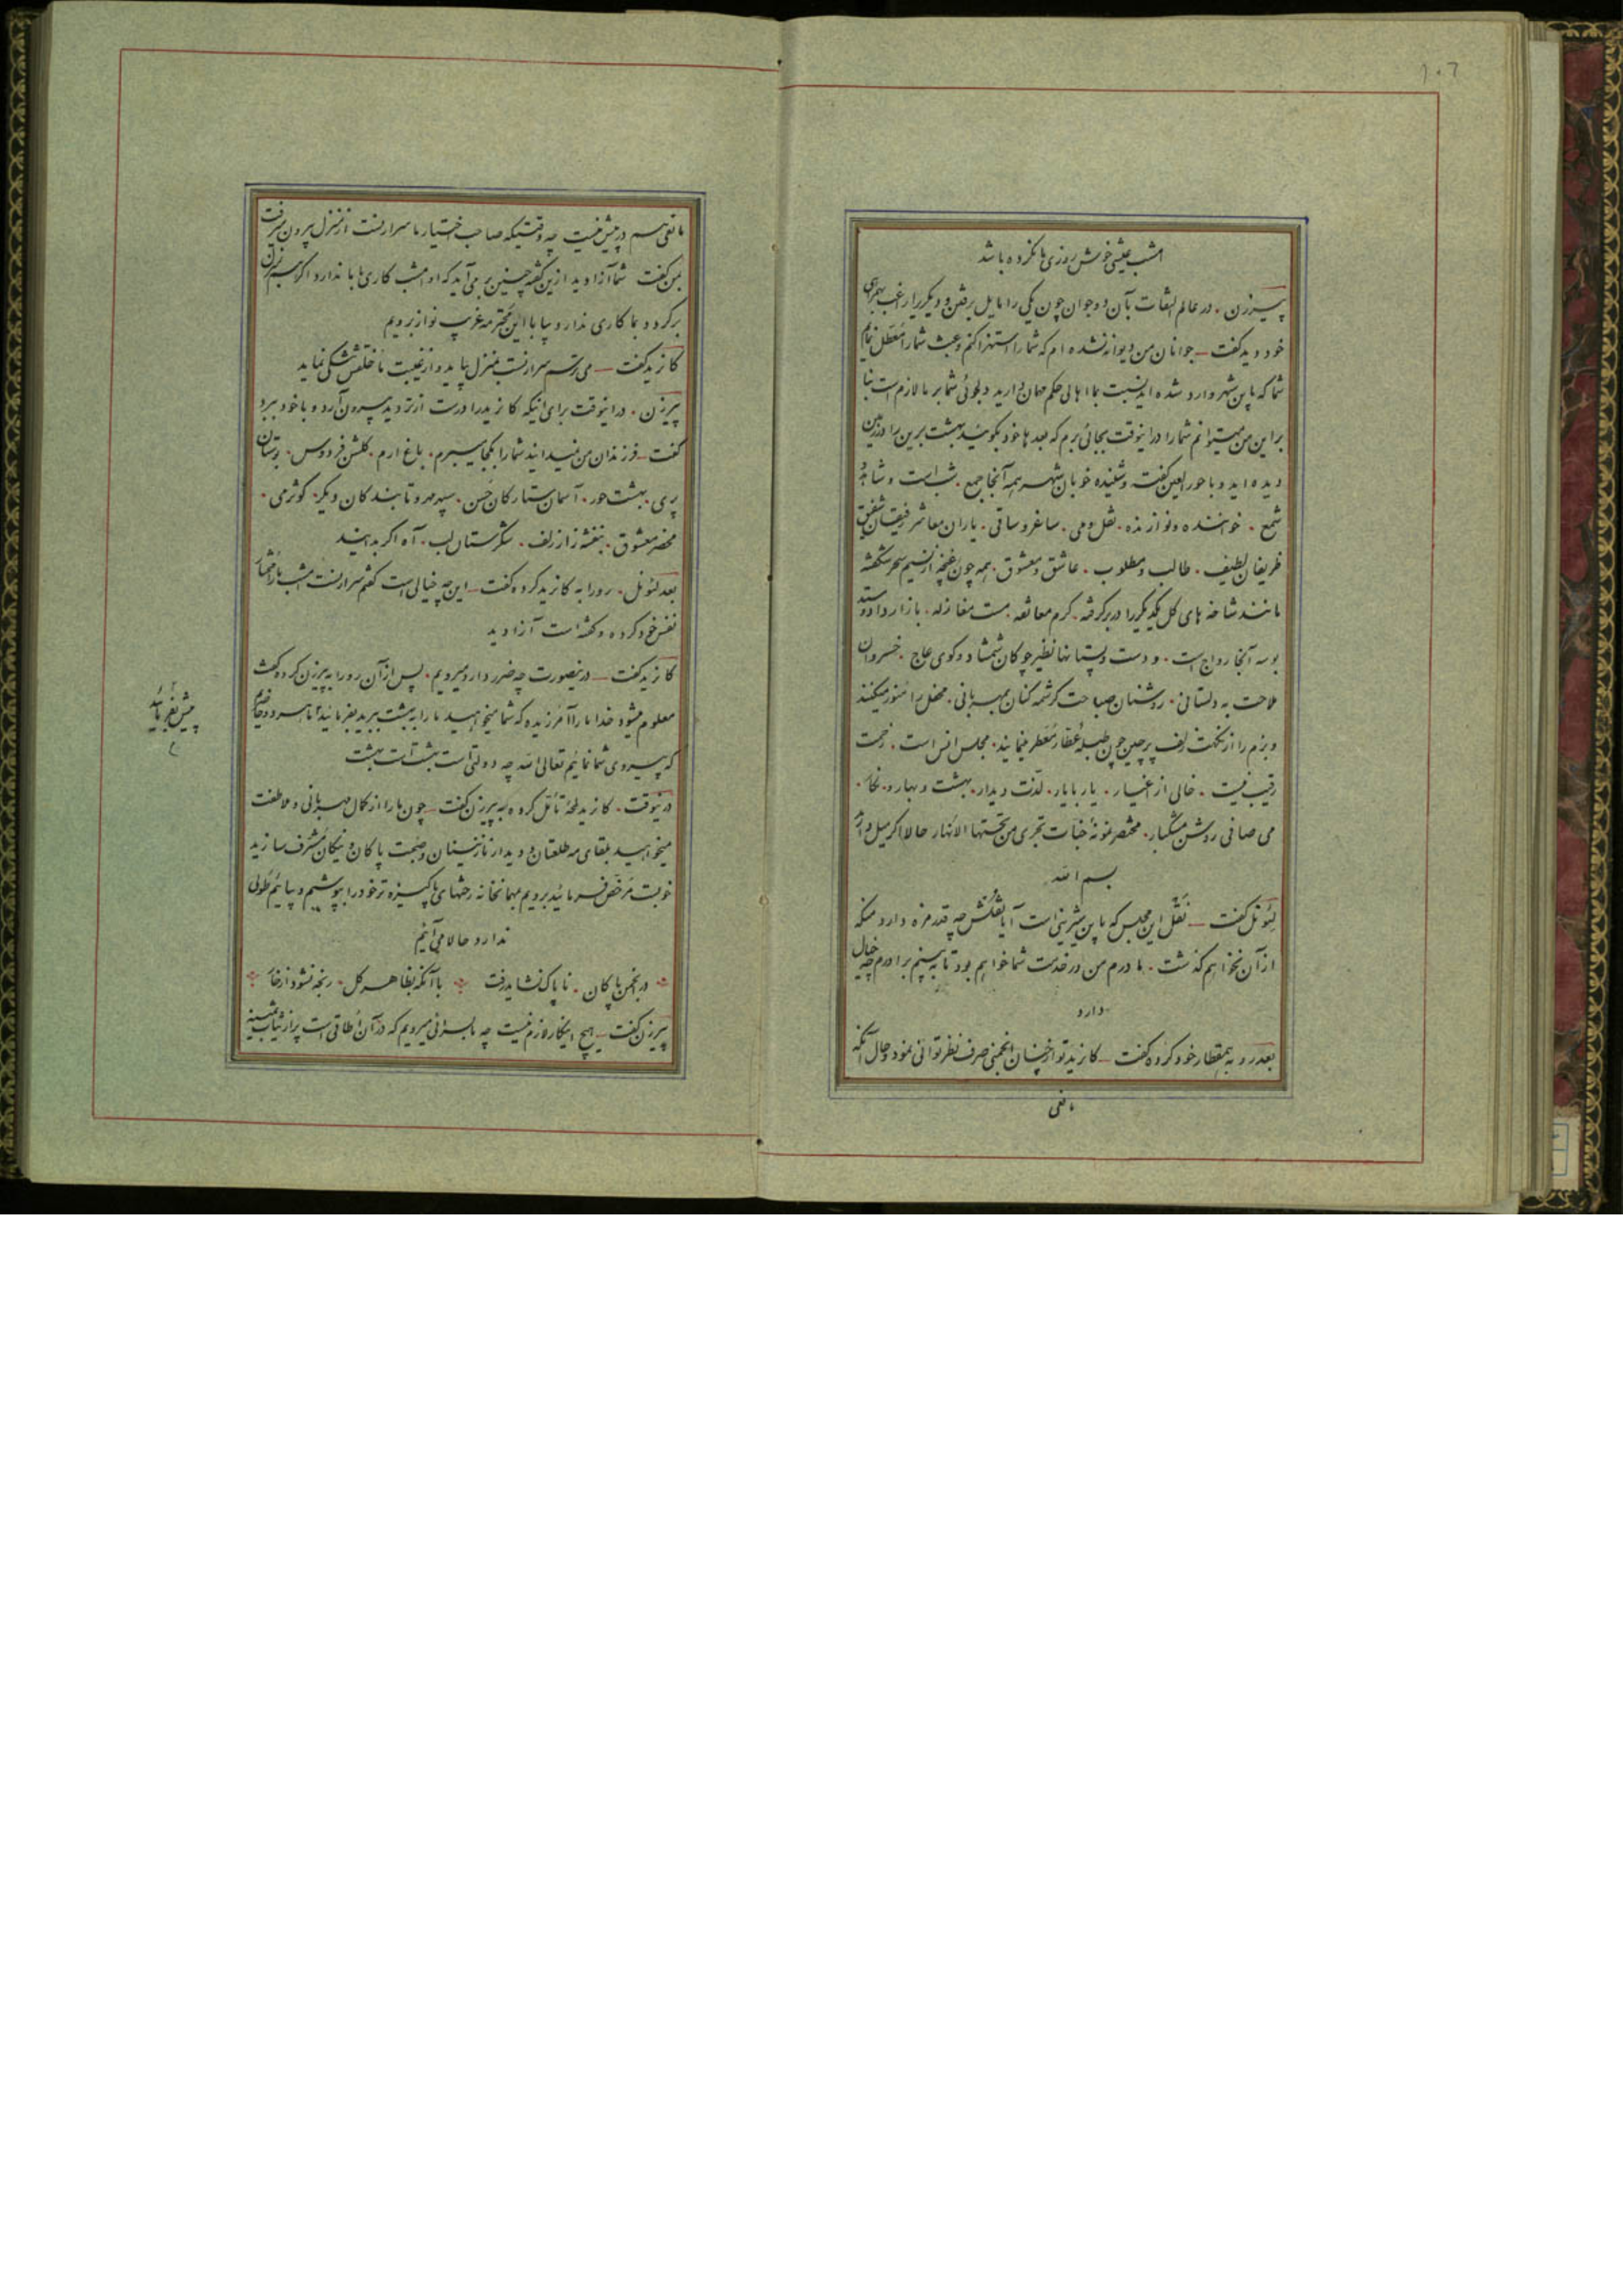 ۱۰۶
امشب عیشی خوش روزی ما کرده باشد
پیرزن . در عالم التفات بآن دو جوان چون یکی را مایل برفتن و دیگری را راغب بهمراهی
خود دید گفت – جوانان من دیوانه نشده ام که شما را استهزا کنم و عبث شما را معطل نمایم
شما که باین شهر وارد شده اید نسبت بما اهالی حکم مهمان دارید دلجوئی شما بر ما لازم است بنا
بر این من میتوانم شما را در اینوقت بجائی برم که بعدها خود بگوئید بهشت برین را در زمین
دیده اید و با حور العین گفت و شنیده خوبان شهر همه آنجا جمع . شب است و شاهد و
شمع . خواننده و نوازنده . نقل و می . ساغر و ساقی . یاران معاشر رفیقان شفیق
ظریفان لطیف . طالب و مطلوب . عاشق و معشوق . همه چون غنچه از نسیم سحر شکفته
مانند شاخه های گل یکدیگر را در بر گرفته . گرم معانقه . مست مغازله . بازار داد و ستد
بوسه آنجا رواج است . و دست و پستانها نظیر چوگان شمشاد و گوی عاج . خسروان
ملاحت به دلستانی . روشنان صباحت کرشمه کنان بمهربانی . محفل را منور میکنند
و بزم را از نکهت زلف پر چین چون طبله عطار معطر مینمایند . مجلس انس است . زحمت
رقیب نیست . خالی از اغیار . یار با یار . لذت دیدار . بهشت و بهار و نگار .
می صافی روشن مشکبار . مختصر نمونهٔ جنات تجری من تحتها الانهار حالا اگر میل دارید
بسم الله
لئونل گفت – نقل این مجلس که باین شیرینی است آیا نقلش چه قدر مزه دارد منکه
از آن نخواهم گذشت . مادرم من در خدمت شما خواهم بود تا به بینم برادرم چه خیال
دارد
بعد رو به همقطار خود کرده گفت – کازید تو از چنان انجمنی صرف نظر توانی نمود و حال آنکه
مانعی
مانعی هم در پیش نیست چه وقتیکه صاحب اختیار ما سرارنست از منزل بیرون میرفت
بمن گفت شما آزادید از این گفته چنین بر می آید که او امشب کاری با ما ندارد اگر هم بمنزل
برگردد بما کاری ندارد بیا با این محترمه غریب نواز برویم
کازید گفت – می ترسم سرارنست بمنزل بیاید و از غیبت ما خلقش تنگی نماید
پیرزن . در اینوقت برای اینکه کازید را درست از تردید بیرون آرد و با خود ببرد
گفت – فرزندان من نمیدانید شما را بکجا میبرم . باغ ارم . گلشن فردوس . بوستان
پری . بهشت حور . آسمان ستارگان حسن . سپهر مهر و تابندگان دیگر . کوثر می .
محضر معشوق . بنفشه زار زلف . شکرستان لب . آه اگر بدانید
بعد لئونل . رو را به کازید کرده گفت – این چه خیالی است گفتم سرارنست امشب ما را مختار
نفس خود کرده و گفته است آزادید
کازید گفت – در اینصورت چه ضرر دارد میرویم . پس از آن رو را به پیرزن کرده گفت
معلوم میشود خدا ما را آمرزیده که شما میخواهید ما را به بهشت ببرید بفرمائید ما هر دو حاضریم
که پیروی شما نمائیم تعالی الله چه دولتی است بهشت است بهشت
پیش بفرمائید
در اینوقت . کازید لحظهٔ تأمل کرده به پیرزن گفت – چون ما را از کمال مهربانی و ملاطفت
میخواهید بلقای مه طلعتان و دیدار نازنینان و صحبت پاکان و نیکان مشرف سازید
خوبست مرخص فرمائید برویم مهمانخانه رختهای پاکیزه تر خود را بپوشیم و بیائیم طولی
ندارد حالا می آئیم
در انجمن پاکان . ناپاک نشاید رفت با آنکه بظاهر گل . رنجه نشود از خار
پیرزن گفت – هیچ اینکار لازم نیست چه ما بسرائی میرویم که در آن اطاقی است پر از ثیاب ثمینه